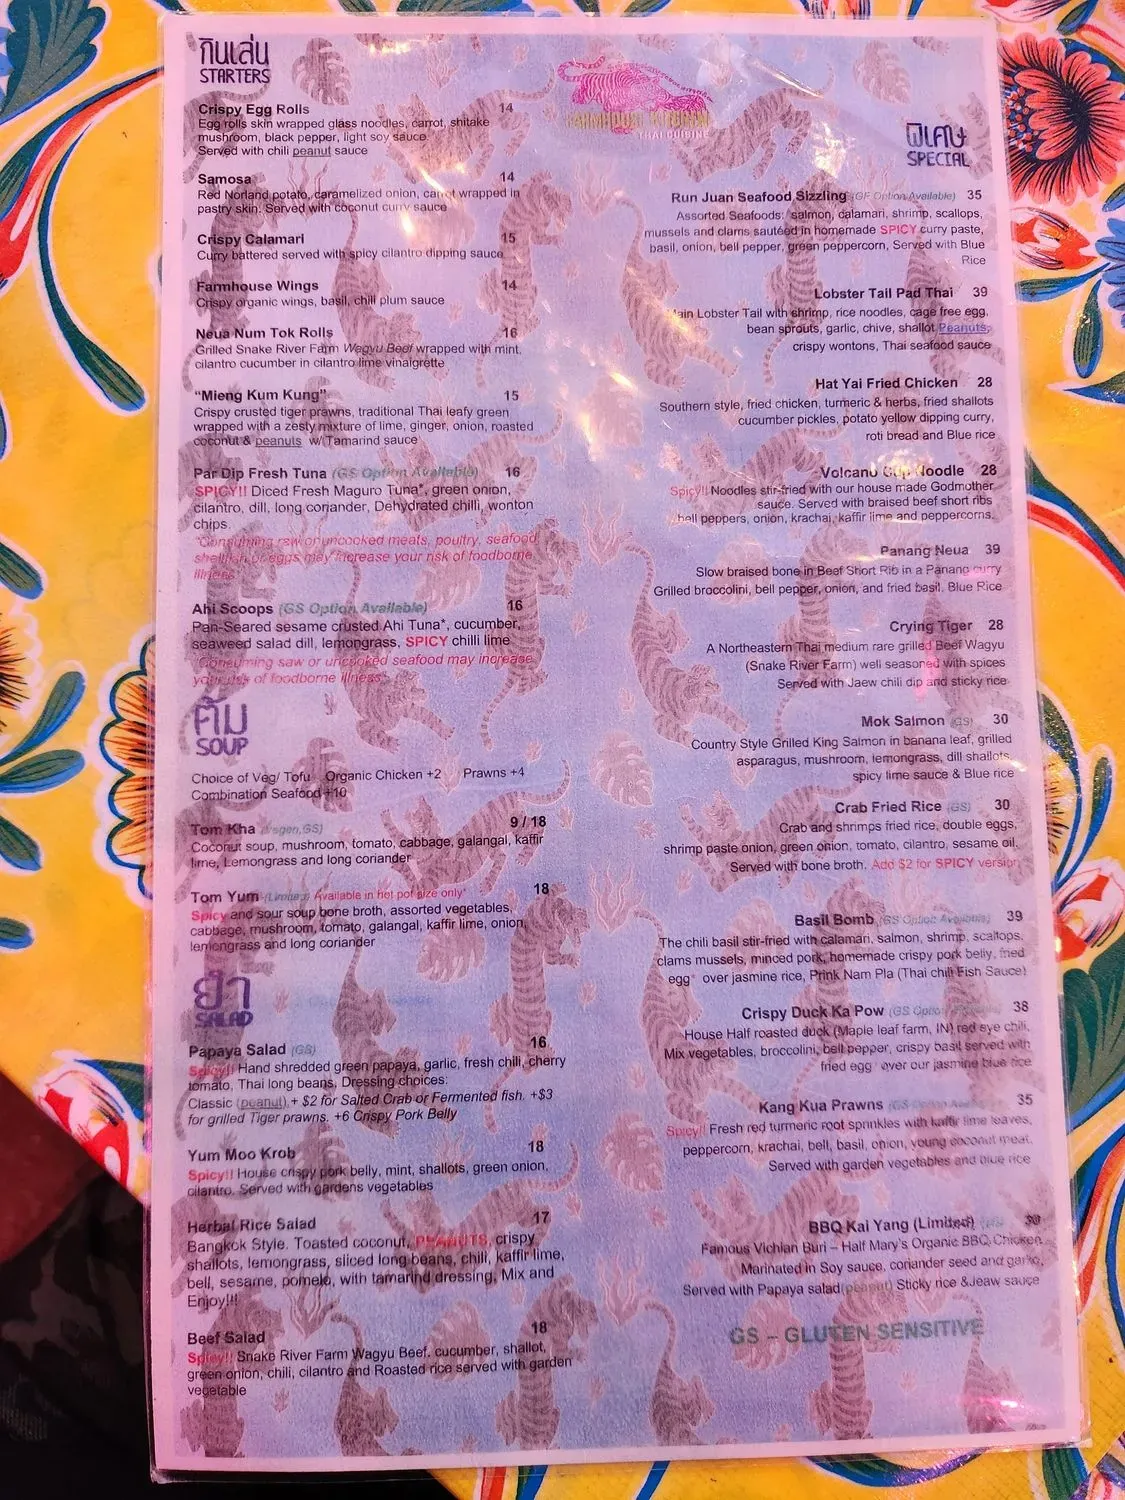 กินเล่น
STARTERS
Crispy Egg Rolls 14
Egg rolls skin wrapped glass noodles, carrot, shitake
mushroom, black pepper, light soy sauce.
Served with chili peanut sauce
Samosa 14
Red Norland potato, caramelized onion, carrot wrapped in
pastry skin. Served with coconut curry sauce
Crispy Calamari 15
Curry battered served with spicy cilantro dipping sauce
Farmhouse Wings 14
Crispy organic wings, basil, chili plum sauce
Neua Num Tok Rolls 16
Grilled Snake River Farm Wagyu Beef wrapped with mint,
cilantro cucumber in cilantro lime vinaigrette
“Mieng Kum Kung” 15
Crispy crusted tiger prawns, traditional Thai leafy green
wrapped with a zesty mixture of lime, ginger, onion, roasted
coconut & peanuts w/ Tamarind sauce
Par Dip Fresh Tuna (GS Option Available) 16
SPICY!! Diced Fresh Maguro Tuna*, green onion,
cilantro, dill, long coriander, Dehydrated chilli, wonton
chips.
"Consuming raw or uncooked meats, poultry, seafood,
shellfish or eggs may increase your risk of foodborne
illness"
Ahi Scoops (GS Option Available) 16
Pan-Seared sesame crusted Ahi Tuna*, cucumber,
seaweed salad dill, lemongrass, SPICY chilli lime
"Consuming raw or uncooked seafood may increase
your risk of foodborne illness"
ต้ม
SOUP
Choice of Veg/ Tofu Organic Chicken +2 Prawns +4
Combination Seafood +10
Tom Kha (Vegan,GS) 9 / 18
Coconut soup, mushroom, tomato, cabbage, galangal, kaffir
lime, Lemongrass and long coriander
Tom Yum (Limited) Available in hot pot size only* 18
Spicy and sour soup bone broth, assorted vegetables,
cabbage, mushroom, tomato, galangal, kaffir lime, onion,
lemongrass and long coriander
ยำ
SALAD
Papaya Salad (GS) 16
Spicy!! Hand shredded green papaya, garlic, fresh chili, cherry
tomato, Thai long beans, Dressing choices:
Classic (peanut),+ $2 for Salted Crab or Fermented fish. +$3
for grilled Tiger prawns. +6 Crispy Pork Belly
Yum Moo Krob 18
Spicy!! House crispy pork belly, mint, shallots, green onion,
cilantro. Served with gardens vegetables
Herbal Rice Salad 17
Bangkok Style. Toasted coconut, PEANUTS, crispy
shallots, lemongrass, sliced long beans, chili, kaffir lime,
bell, sesame, pomelo, with tamarind dressing, Mix and
Enjoy!!!
Beef Salad 18
Spicy!! Snake River Farm Wagyu Beef. cucumber, shallot,
green onion, chili, cilantro and Roasted rice served with garden
vegetable
FARMHOUSE KITCHEN
THAI CUISINE
พิเศษ
SPECIAL
Run Juan Seafood Sizzling (GF Option Available) 35
Assorted Seafoods: salmon, calamari, shrimp, scallops,
mussels and clams sautéed in homemade SPICY curry paste,
basil, onion, bell pepper, green peppercorn, Served with Blue
Rice
Lobster Tail Pad Thai 39
Main Lobster Tail with shrimp, rice noodles, cage free egg,
bean sprouts, garlic, chive, shallot Peanuts,
crispy wontons, Thai seafood sauce
Hat Yai Fried Chicken 28
Southern style, fried chicken, turmeric & herbs, fried shallots
cucumber pickles, potato yellow dipping curry,
roti bread and Blue rice
Volcano Cup Noodle 28
Spicy!! Noodles stir-fried with our house made Godmother
sauce. Served with braised beef short ribs
bell peppers, onion, krachai, kaffir lime and peppercorns.
Panang Neua 39
Slow braised bone in Beef Short Rib in a Panang curry
Grilled broccolini, bell pepper, onion, and fried basil. Blue Rice
Crying Tiger 28
A Northeastern Thai medium rare grilled Beef Wagyu
(Snake River Farm) well seasoned with spices
Served with Jaew chili dip and sticky rice
Mok Salmon (GS) 30
Country Style Grilled King Salmon in banana leaf, grilled
asparagus, mushroom, lemongrass, dill shallots,
spicy lime sauce & Blue rice
Crab Fried Rice (GS) 30
Crab and shrimps fried rice, double eggs,
shrimp paste onion, green onion, tomato, cilantro, sesame oil.
Served with bone broth. Add $2 for SPICY version
Basil Bomb (GS Option Available) 39
The chili basil stir-fried with calamari, salmon, shrimp, scallops,
clams mussels, minced pork, homemade crispy pork belly, fried
egg* over jasmine rice, Prink Nam Pla (Thai chili Fish Sauce)
Crispy Duck Ka Pow (GS Option Available) 38
House Half roasted duck (Maple leaf farm, IN) red eye chili,
Mix vegetables, broccolini, bell pepper, crispy basil served with
fried egg* over our jasmine blue rice
Kang Kua Prawns (GS Option Available) 35
Spicy!! Fresh red turmeric root sprinkles with kaffir lime leaves,
peppercorn, krachai, bell, basil, onion, young coconut meat.
Served with garden vegetables and blue rice
BBQ Kai Yang (Limited) 30
Famous Vichian Buri – Half Mary's Organic BBQ Chicken
Marinated in Soy sauce, coriander seed and garlic,
Served with Papaya salad(peanut) Sticky rice &Jeaw sauce
GS – GLUTEN SENSITIVE